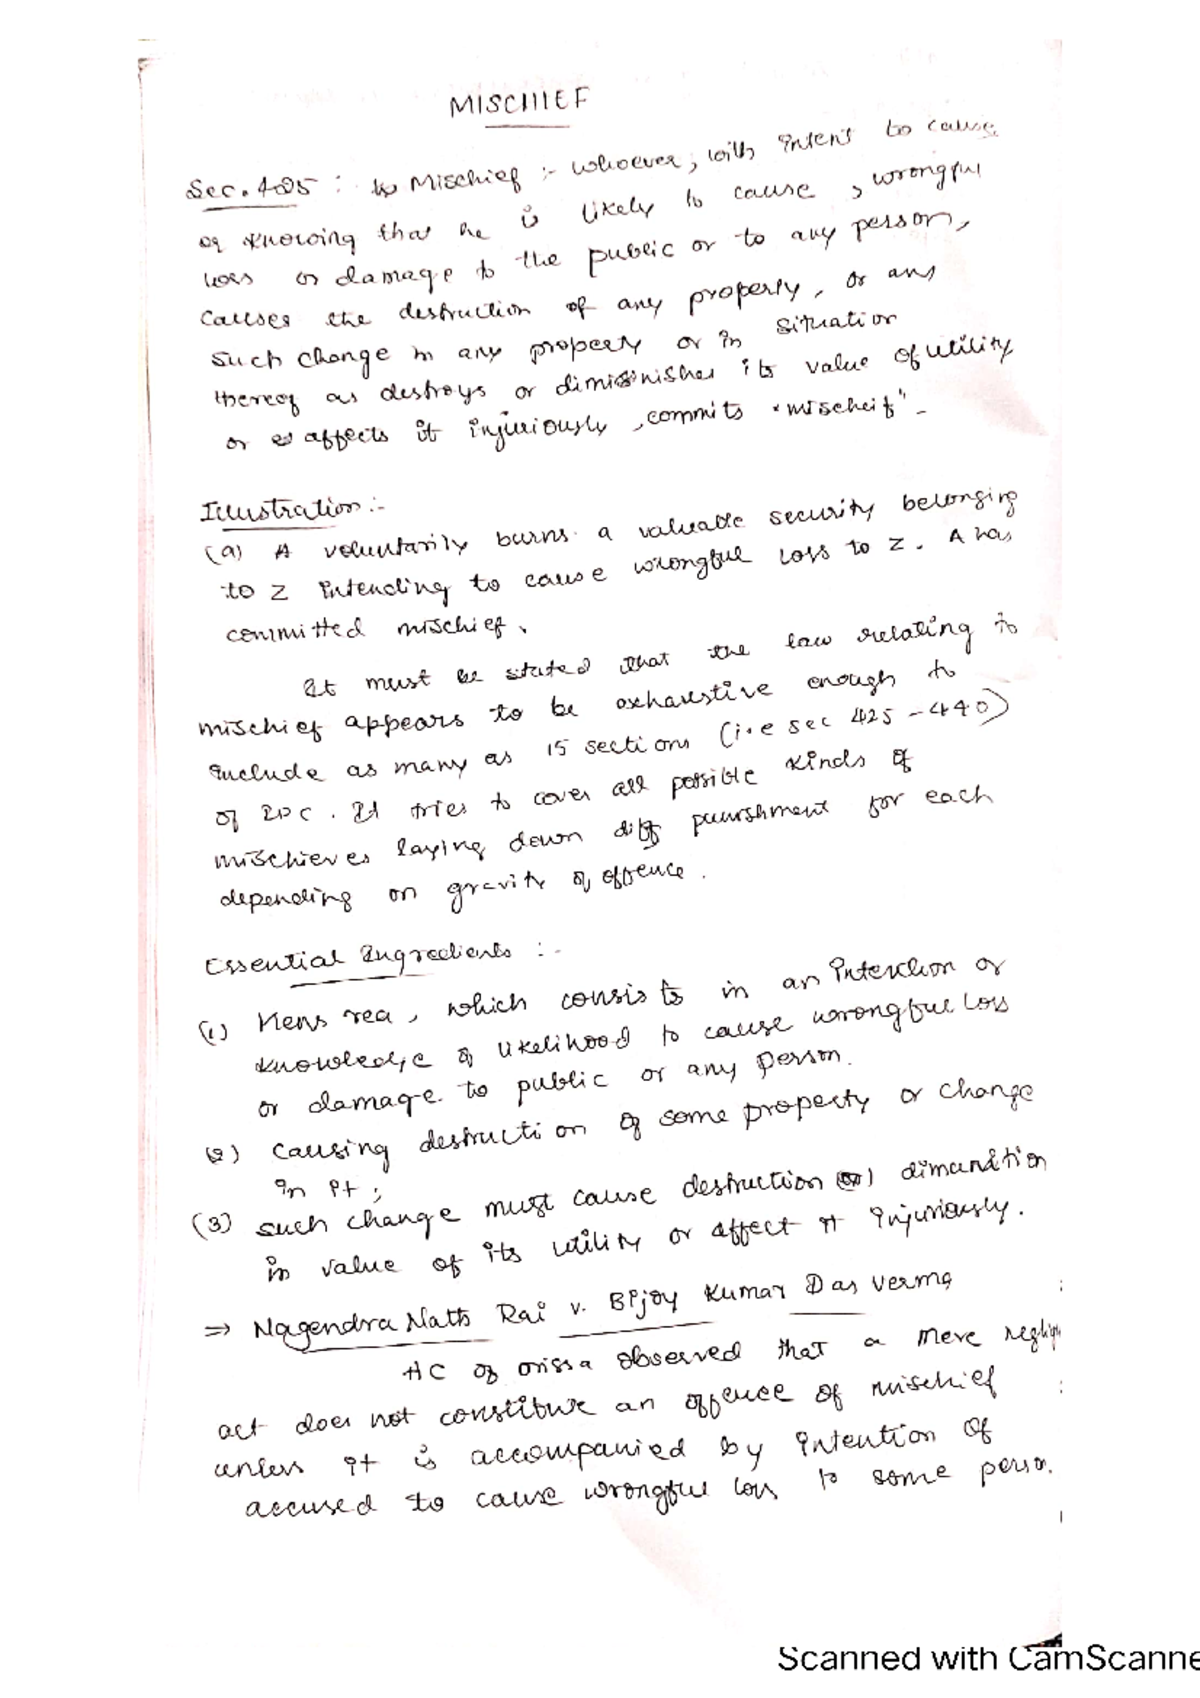 MISCHIEF
Sec. 425 : Mischief :- whoever, with intent to cause,
or knowing that he is likely to cause, wrongful
loss or damage to the public or to any person,
causes the destruction of any property, or any
such change in any property or in situation
thereof as destroys or diminishes its value of utility
or affects it injuriously, commits "mischeif".
Illustration :-
(a) A voluntarily burns a valuable security belonging
to Z intending to cause wrongful loss to Z. A has
committed mischief.
It must be stated that the law relating to
mischief appears to be exhaustive enough to
include as many as 15 sections (i.e sec 425-440)
of IPC. It tries to cover all possible kinds of
mischieves laying down diff punishment for each
depending on gravity of offence.
Essential Ingredients :-
(1) Mens rea, which consists in an intention or
knowledge of likelihood to cause wrongful loss
or damage to public or any person.
(2) Causing destruction of some property or change
in it ;
(3) such change must cause destruction (or) dimanition
in value of its utility or affect it injuriously.
⇒ Nagendra Nath Rai v. Bijoy Kumar Das Verma
HC of orissa observed that a mere neglig
act does not constitute an offence of mischief
unless it is accompanied by intention of
accused to cause wrongful loss to some person.
Scanned with CamScanne